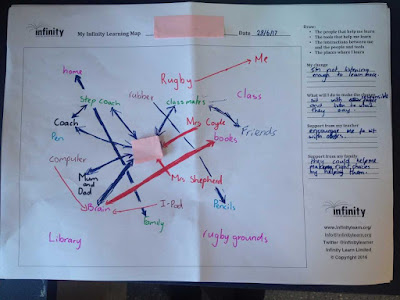 infinity
My Infinity Learning Map
Date 28/6/17
Draw:
The people that help me learn
The tools that help me learn
The interactions between me
and the people and tools
The places where I learn
My change
I'm not listening
enough to learn more.
What will I do to make the change
Support from my teacher
encourage me to
sit with others.
Support from my family
They could help me
making right choices
by helping them.
home
Rugby
Me
Step coach
rubber
class mates
class
Coach
Pen
Friends
Mrs Coyle
books
computer
Mum
and
Dad
Mrs Shepherd
Brain
I-Pad
family
Pencils
Library
rugby grounds
infinity
www.infinitylearn.org
info@infinitylearn.org
Twitter @infinitylearn
Infinity Learn Limited
© Copyright 2016